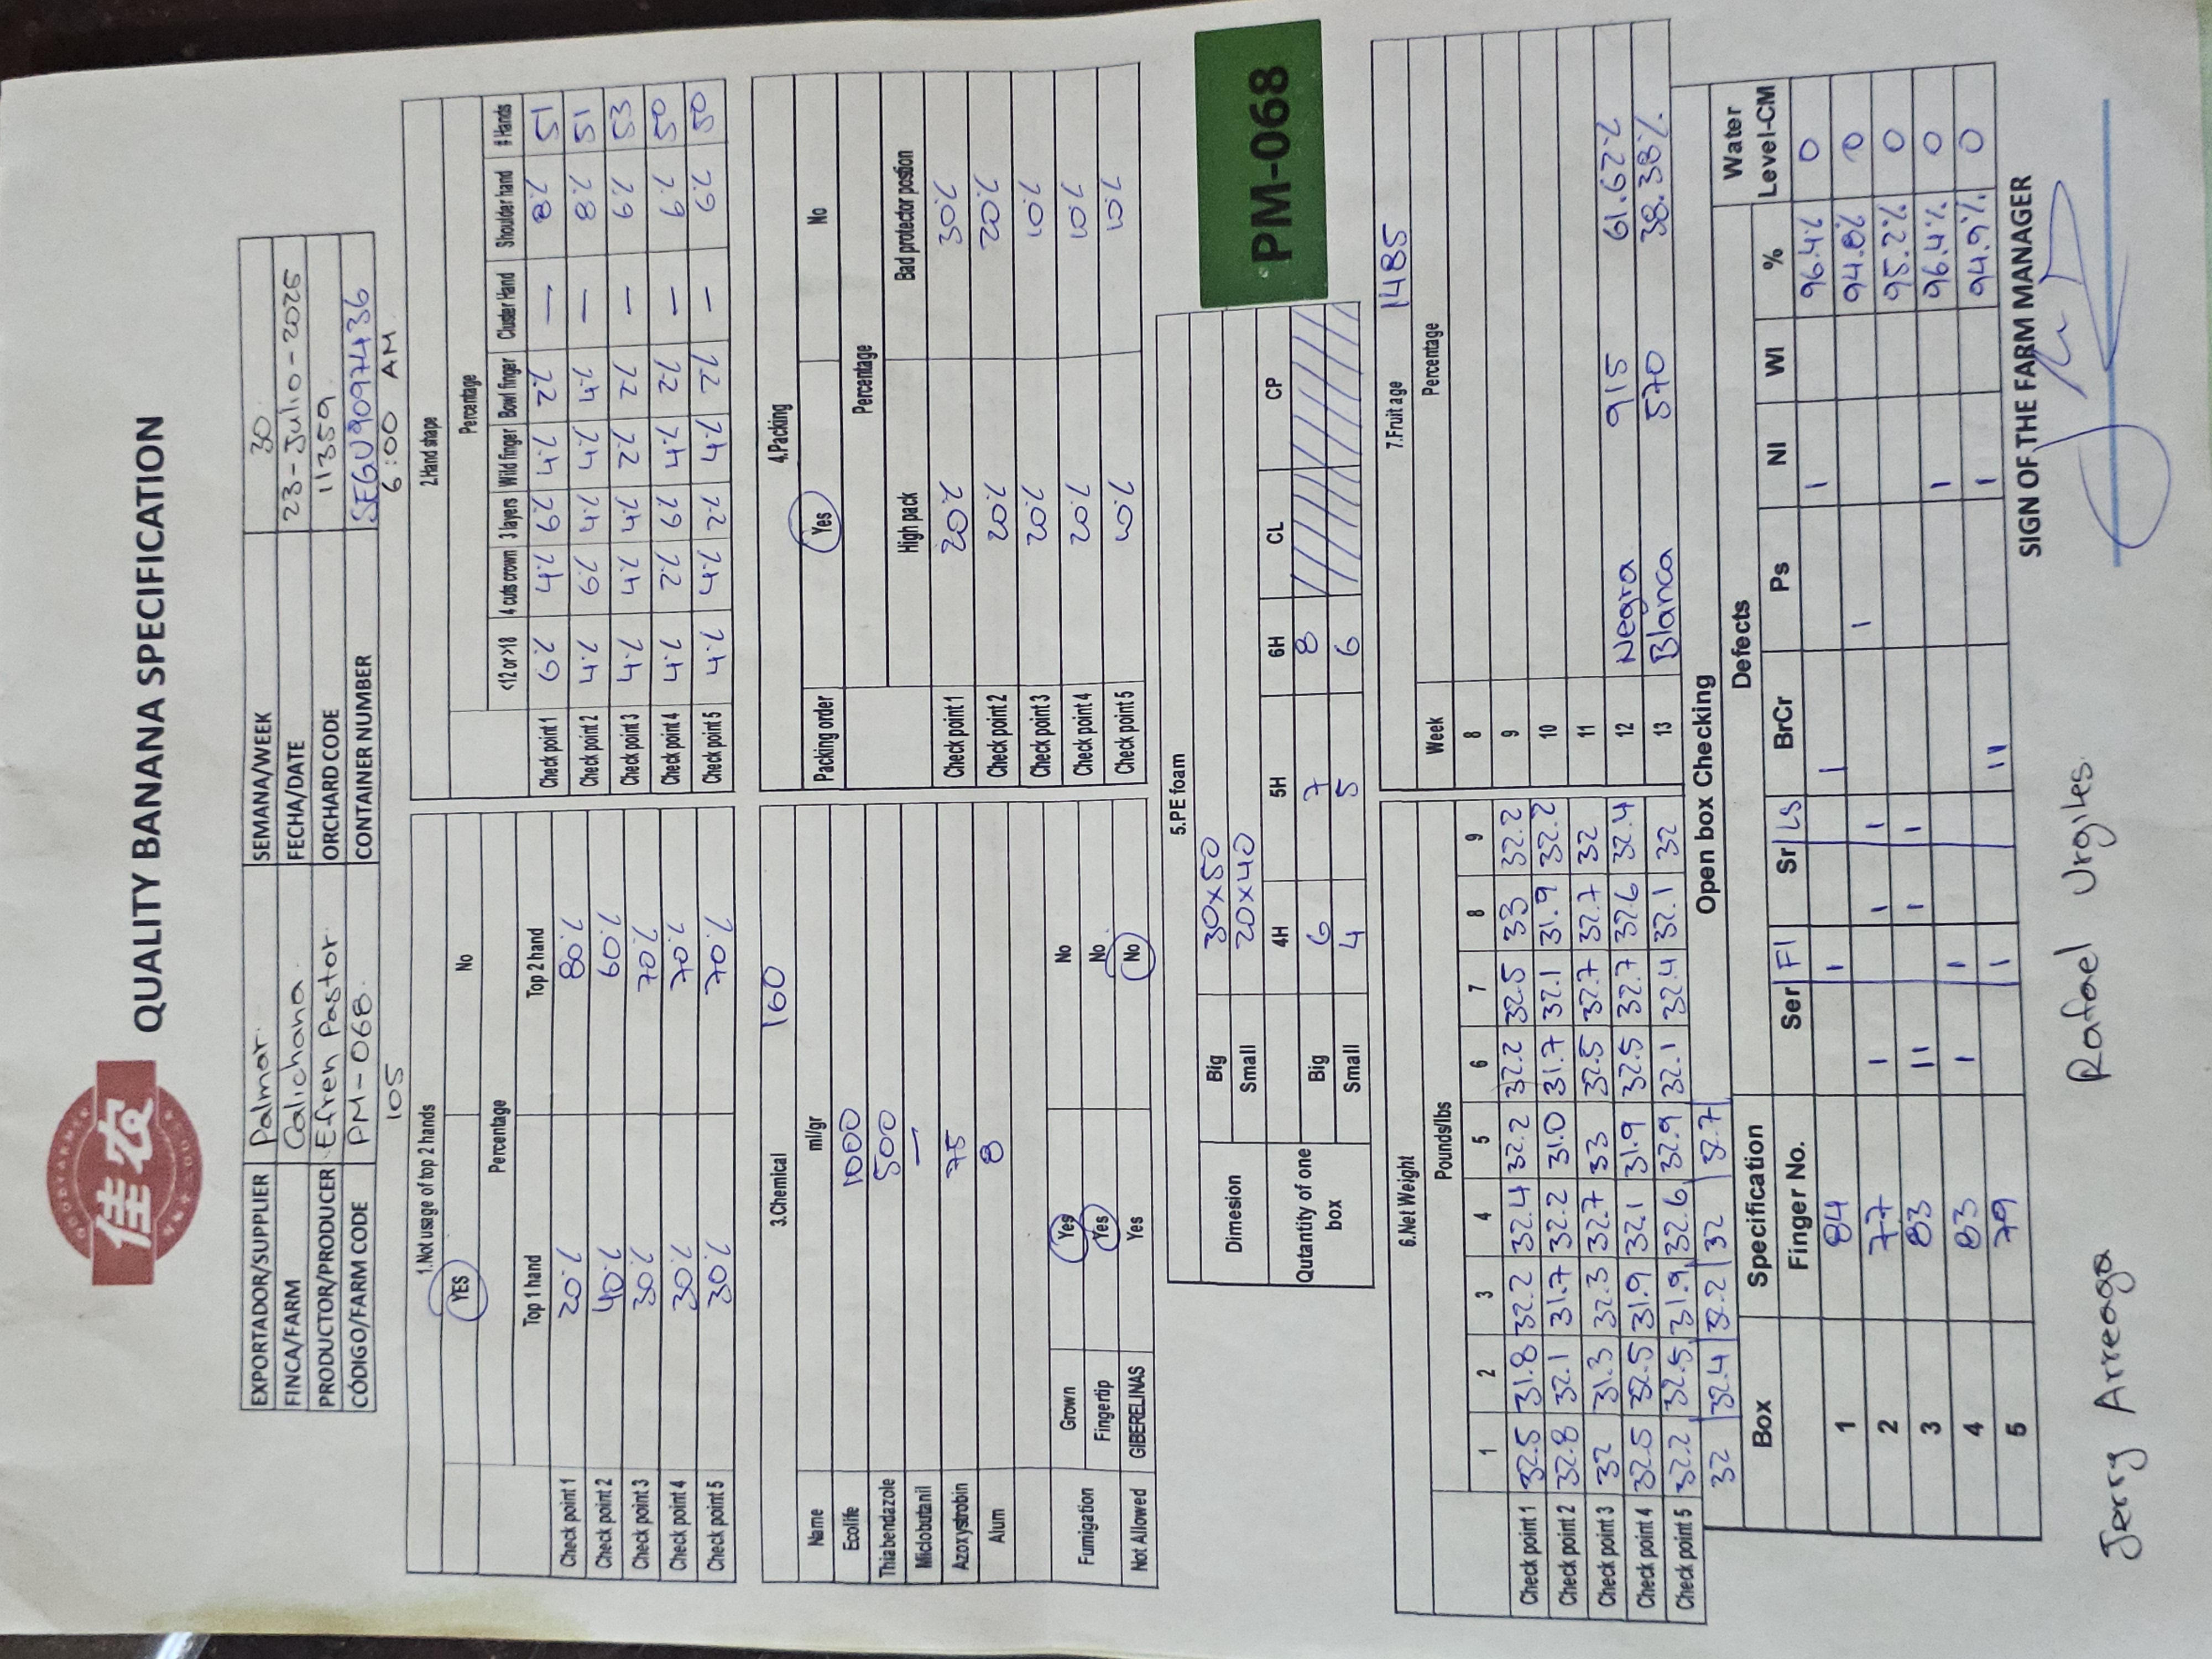 GOODFARMER
佳农
QUALITY BANANA SPECIFICATION
EXPORTADOR/SUPPLIER Palmar. SEMANA/WEEK 30
FINCA/FARM Calichana. FECHA/DATE 23-Julio-2025
PRODUCTOR/PRODUCER Efren Pastor. ORCHARD CODE 11359
CÓDIGO/FARM CODE PM-068. CONTAINER NUMBER SEGU9097436
105 6:00 AM
1.Not usage of top 2 hands
YES No
Percentage
Top 1 hand Top 2 hand
Check point 1 20% 80%
Check point 2 40% 60%
Check point 3 30% 70%
Check point 4 30% 70%
Check point 5 30% 70%
2.Hand shape
Percentage
<12 or >18 4 cuts crown 3 layers Wild finger Bowl finger Cluster Hand Shoulder hand # Hands
Check point 1 6% 4% 6% 4% 2% — 8% 51
Check point 2 4% 6% 4% 4% 4% — 8% 51
Check point 3 4% 4% 4% 2% 2% — 6% 53
Check point 4 4% 2% 6% 4% 2% — 6% 50
Check point 5 4% 4% 2% 4% 2% — 6% 50
3.Chemical 160
Name ml/gr
Ecolife 1000
Thiabendazole 500
Miclobutanil —
Azoxystrobin 75
Alum 8
Fumigation Grown Yes No
Fingertip Yes No
Not Allowed GIBERELINAS Yes No
4.Packing
Packing order Yes No
Percentage
High pack Bad protector postion
Check point 1 20% 30%
Check point 2 20% 20%
Check point 3 20% 10%
Check point 4 20% 10%
Check point 5 10% 10%
5.PE foam
Dimesion Big 30x50
Small 20x40
4H 5H 6H CL CP
Qutantity of one box
Big 6 7 8
Small 4 5 6
PM-068
6.Net Weight
Pounds/lbs
1 2 3 4 5 6 7 8 9
Check point 1 32.5 31.8 32.2 32.4 32.2 32.2 32.5 33 32.2
Check point 2 32.8 32.1 31.7 32.2 31.0 31.7 32.1 31.9 32.2
Check point 3 32 31.3 32.3 32.7 33 32.5 32.7 32.7 32
Check point 4 32.5 32.5 31.9 32.1 31.9 32.5 32.7 32.6 32.4
Check point 5 32.2 32.5 31.9 32.6 32.9 32.1 32.4 32.1 32
32 32.4 32.2 32 32.7
7.Fruit age 1485
Week Percentage
8
9
10
11
12 Negra 915 61.62%
13 Blanca 570 38.38%
Open box Checking
Box Specification Defects Water Level-CM
Finger No. Ser FI Sr LS BrCr Ps NI WI %
1 84 I I I 96.4% 0
2 77 I I I I 94.8% 0
3 83 II I I 95.2% 0
4 83 I I I 96.4% 0
5 79 I II I 94.9% 0
SIGN OF THE FARM MANAGER
Jerry Arreaga Rafael Urgiles.